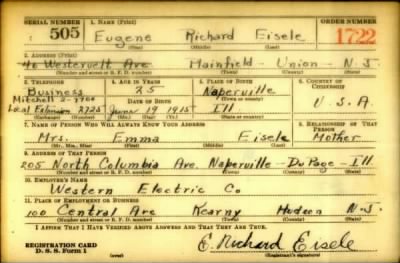 SERIAL NUMBER 1. NAME (Print) ORDER NUMBER
505 Eugene Richard Eisele 1722
(First) (Middle) (Last)
2. ADDRESS (Print)
40 Westervelt Ave Plainfield - Union - N.J.
(Number and street or R. F. D. number) (Town) (County) (State)
3. TELEPHONE 4. AGE IN YEARS 5. PLACE OF BIRTH 6. COUNTRY OF CITIZENSHIP
Business 25 Naperville
Mitchell 2-7704 DATE OF BIRTH (Town or county) U.S.A.
2725 June 19 1915 Ill
(Exchange) (Number) (Mo.) (Day) (Yr.) (State or country)
7. NAME OF PERSON WHO WILL ALWAYS KNOW YOUR ADDRESS 8. RELATIONSHIP OF THAT PERSON
Mrs. Emma Eisele Mother
(Mr., Mrs., Miss) (First) (Middle) (Last)
9. ADDRESS OF THAT PERSON
205 North Columbia Ave. Naperville - DuPage - Ill
(Number and street or R. F. D. number) (Town) (County) (State)
10. EMPLOYER'S NAME
Western Electric Co
11. PLACE OF EMPLOYMENT OR BUSINESS
100 Central Ave Kearny Hudson N.J.
(Number and street or R. F. D. number) (Town) (County) (State)
I AFFIRM THAT I HAVE VERIFIED ABOVE ANSWERS AND THAT THEY ARE TRUE.
REGISTRATION CARD
D. S. S. Form 1 (over) E. Richard Eisele
(Registrant's signature)